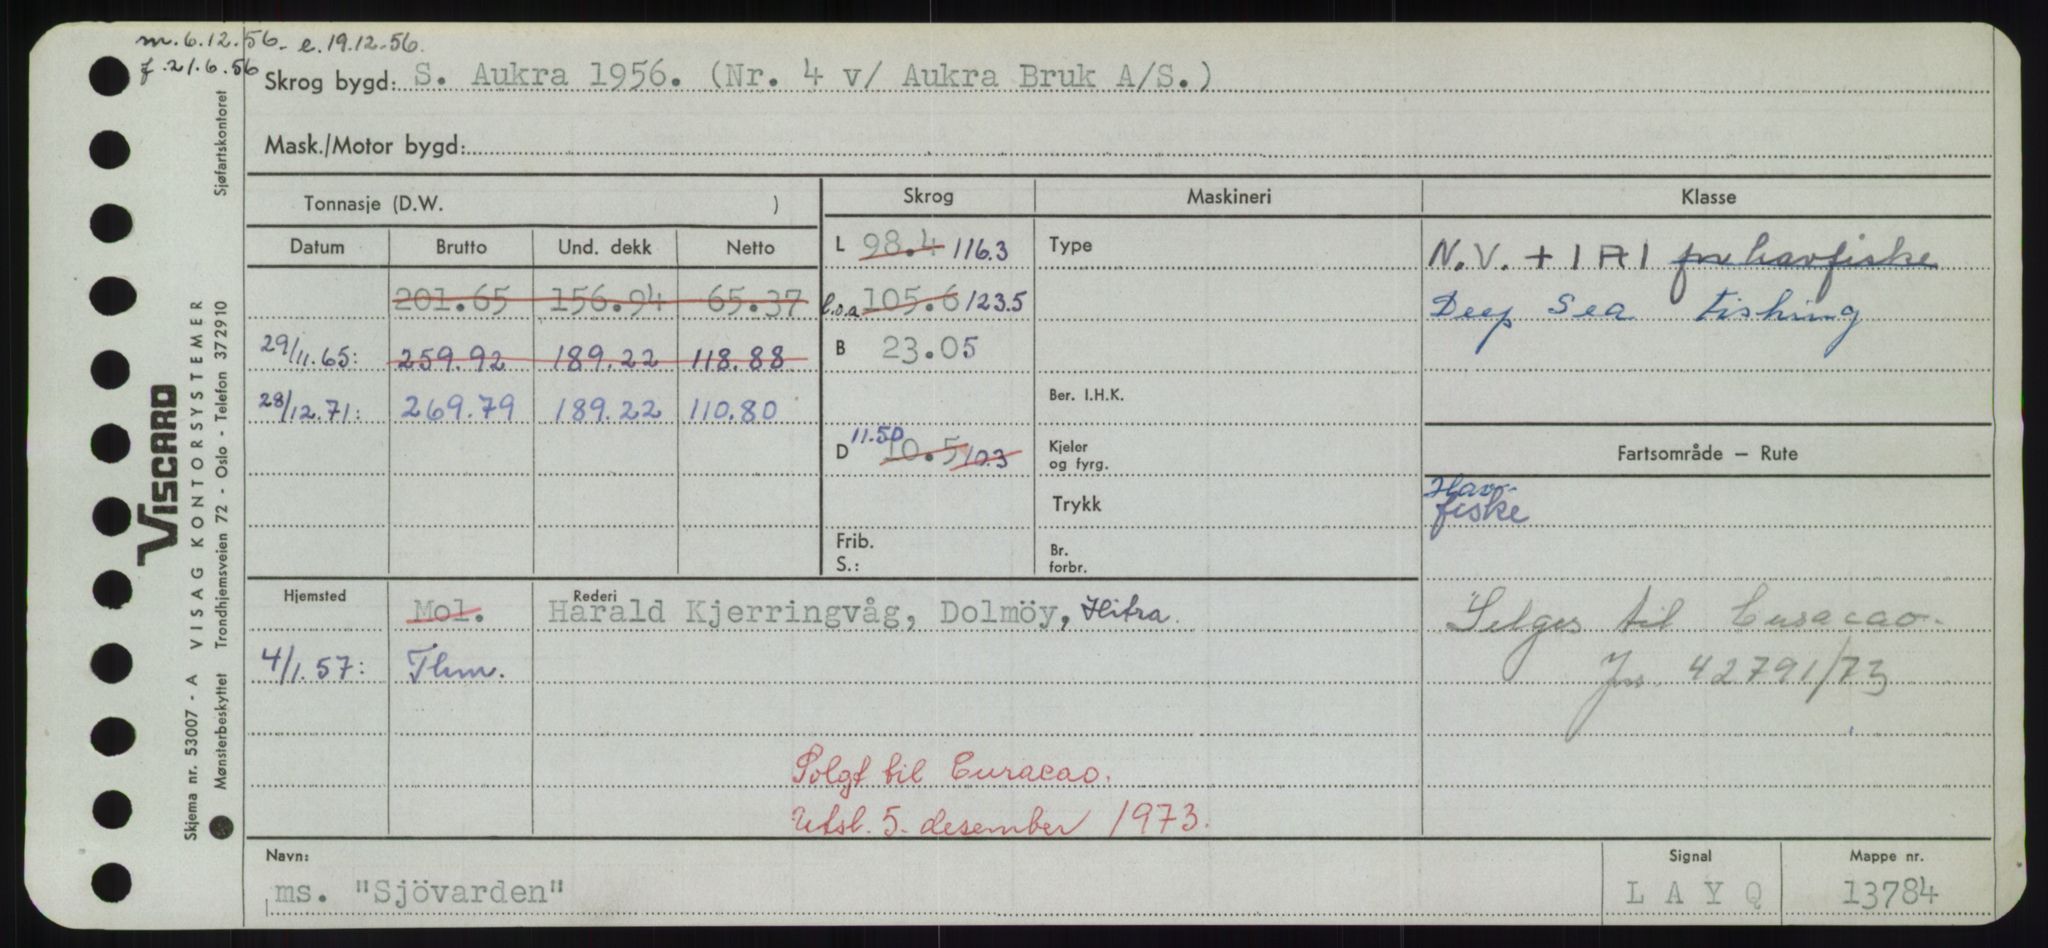 m. 6.12.56. e. 19.12.56.
f. 21.6.56
Skrog bygd: S. Aukra 1956. (Nr. 4 v/ Aukra Bruk A/S.)
Mask./Motor bygd:
Tonnasje (D.W. )
Skrog Maskineri Klasse
Datum Brutto Und. dekk Netto
L 98.4 116.3 Type
N.V. + 1 A 1 for havfiske
201.65 156.94 65.37
l.o.a 105.6 123.5
Deep Sea Fishing
29/11.65: 259.92 189.22 118.88
B 23.05
28/12.71: 269.79 189.22 110.80
Ber. I.H.K.
D 11.50 10.5 10.3
Kjeler
og fyrg.
Fartsområde – Rute
Trykk
Hav-
fiske
Frib.
S.:
Br.
forbr.
Hjemsted Rederi
Mol. Harald Kjerringvåg, Dolmöy, Hitra.
Selges til Curacao.
4/1.57: Thm.
Jnr. 42791/73
Solgt til Curacao.
Utsl. 5. desember 1973.
Navn: Signal Mappe nr.
ms. "Sjövarden" L A Y Q 13784
Viscard
VISAG KONTORSYSTEMER
Sjøfartskontoret
Skjema nr. 53007 - A
Mønsterbeskyttet Trondhjemsveien 72 - Oslo - Telefon 372910